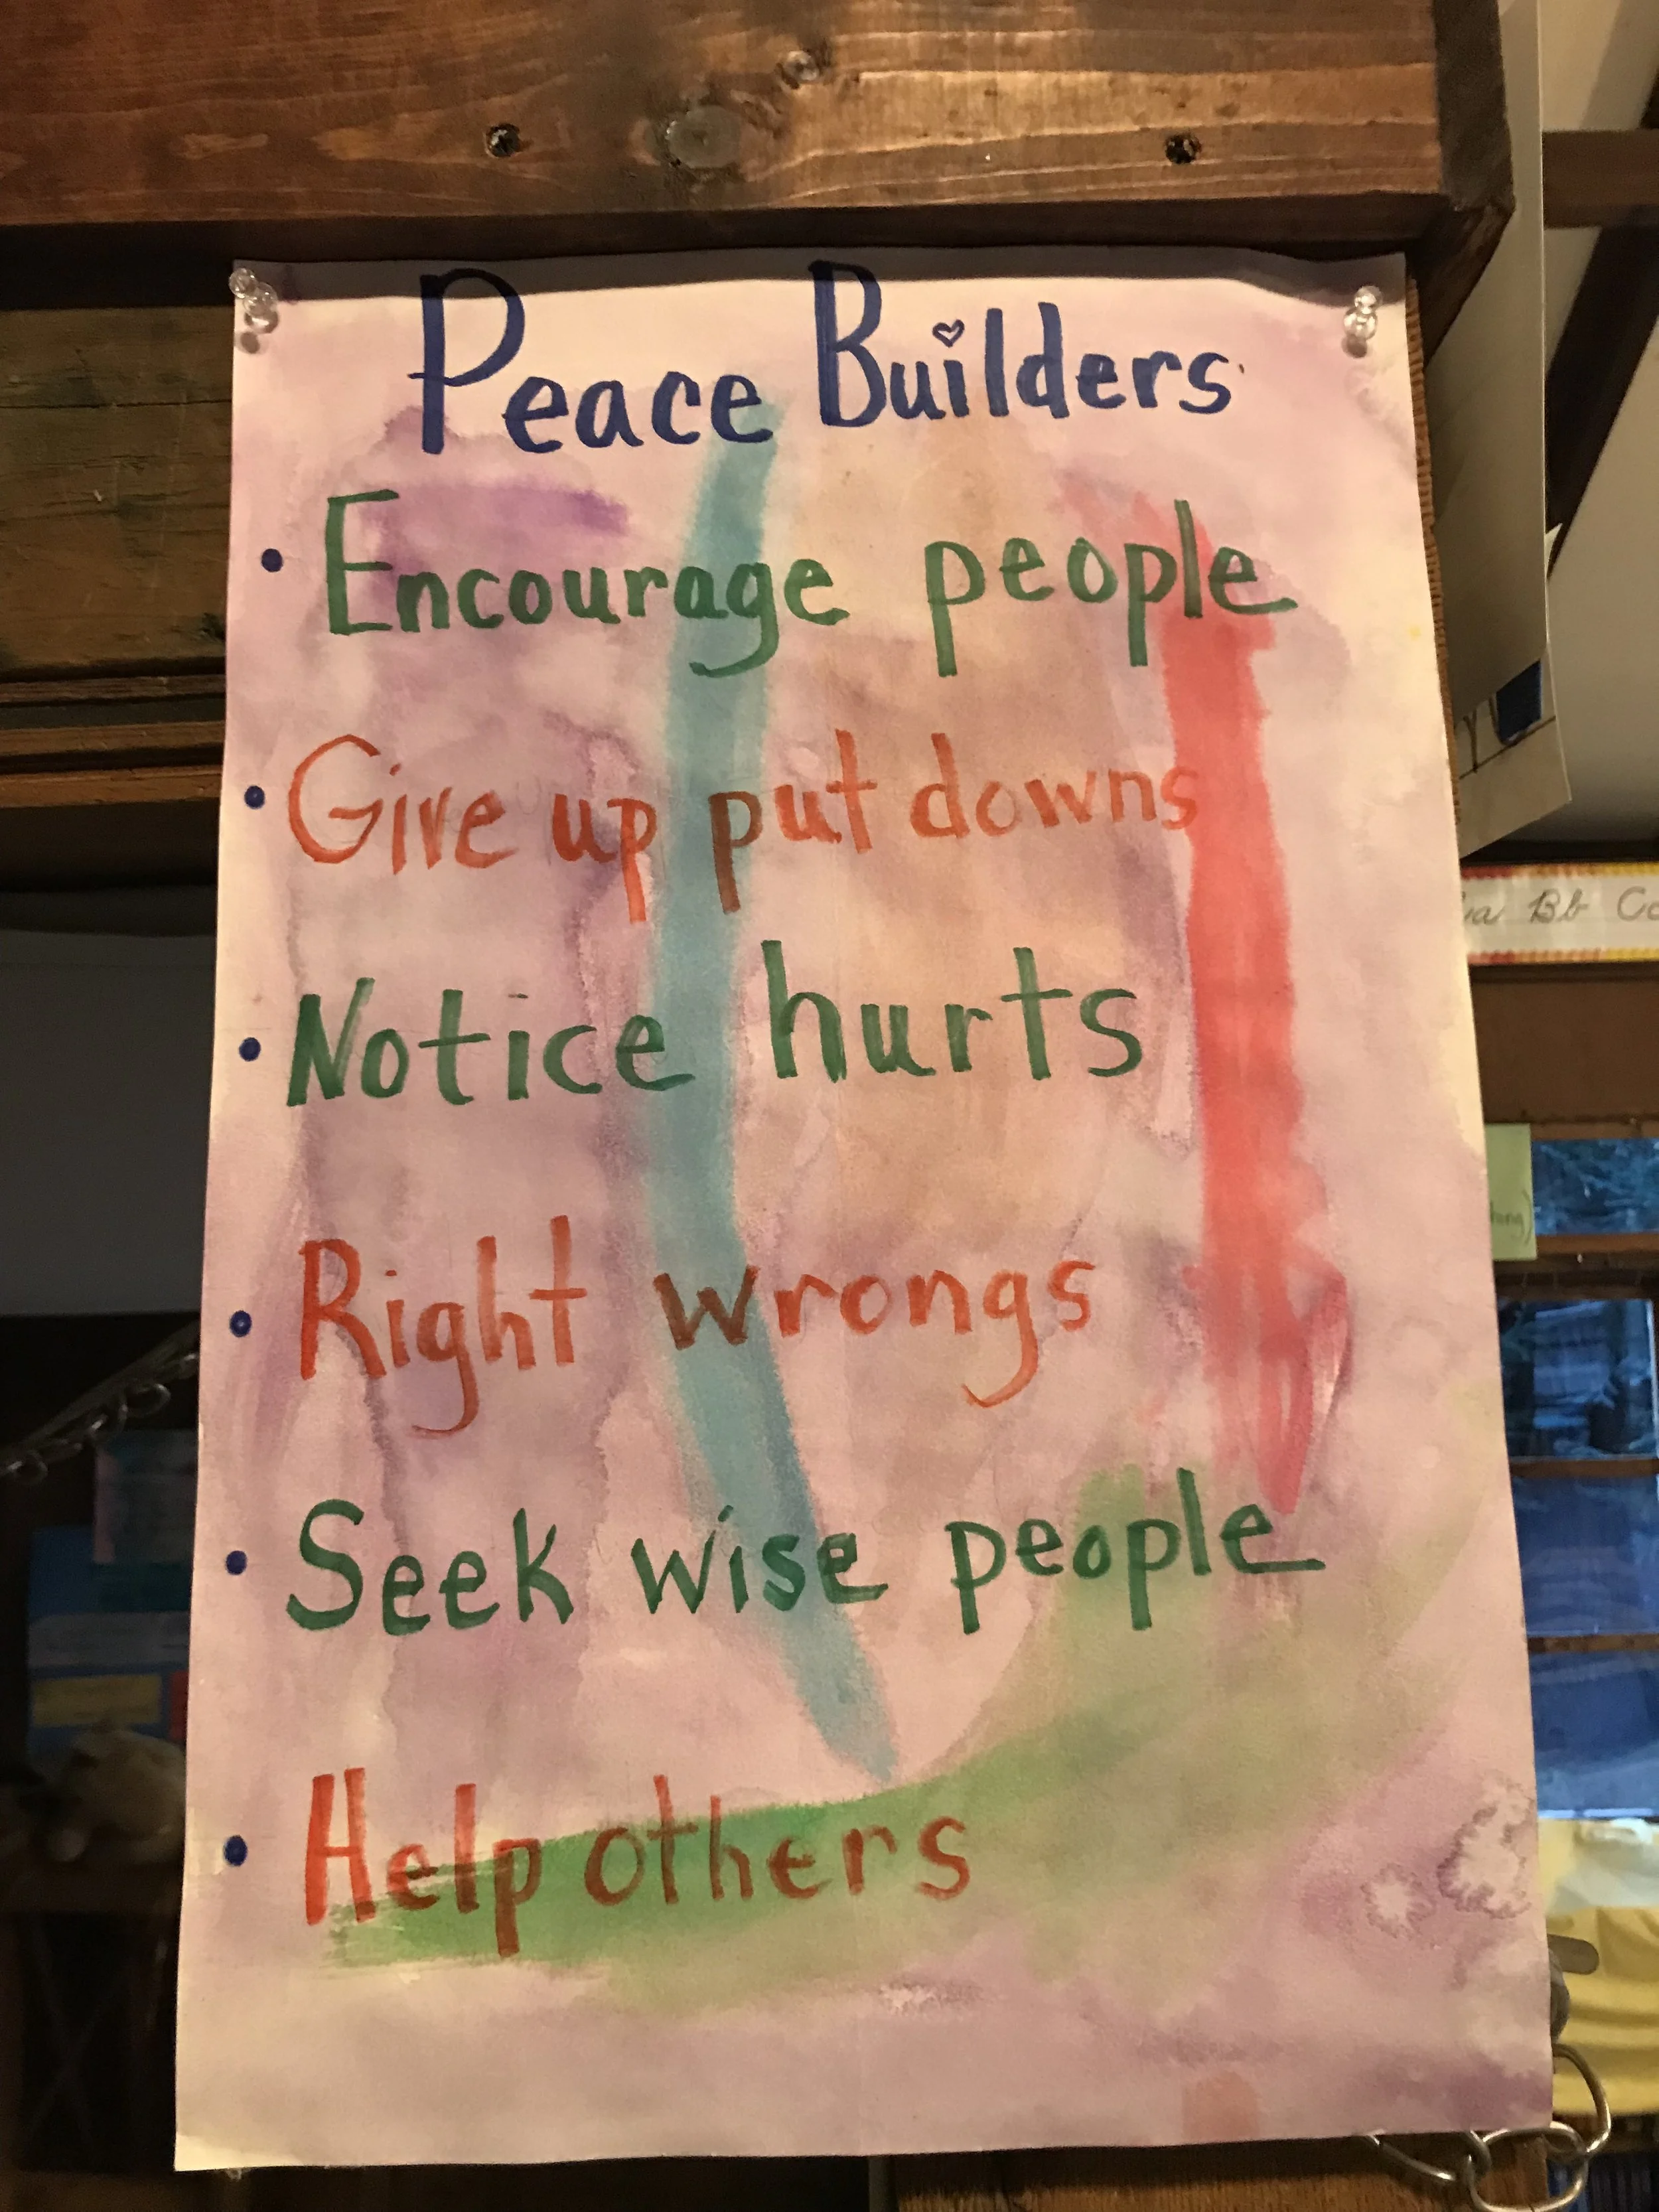 Peace Builders
• Encourage people
• Give up put downs
• Notice hurts
• Right wrongs
• Seek wise people
• Help others
Bb